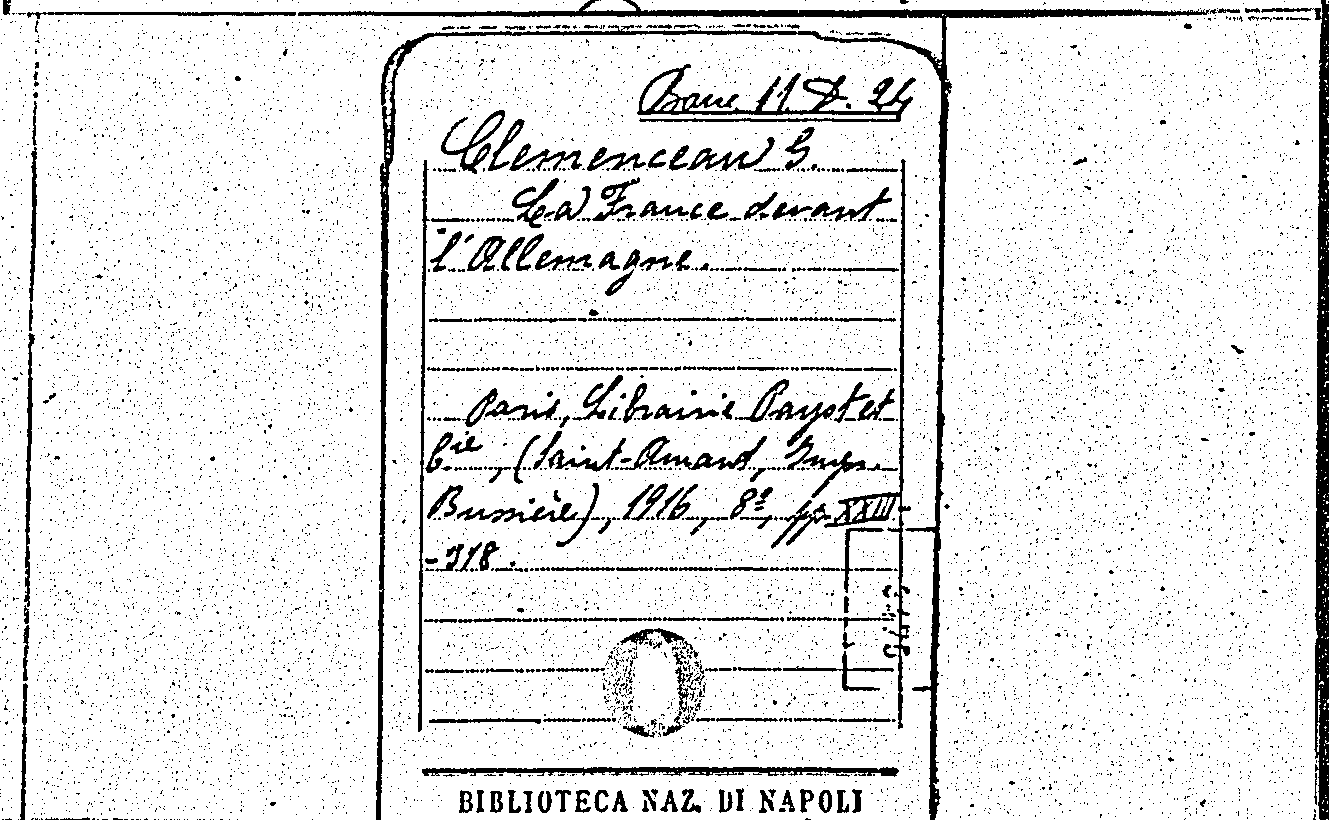 11. D. 24
Clemenceau G.
La France devant
l'Allemagne.
Paris, Librairie Payot et
Cie, (Saint-Amand, Impr.
Bussière), 1916, 8º, pp. XXIII-
-318.
BIBLIOTECA NAZ. DI NAPOLI